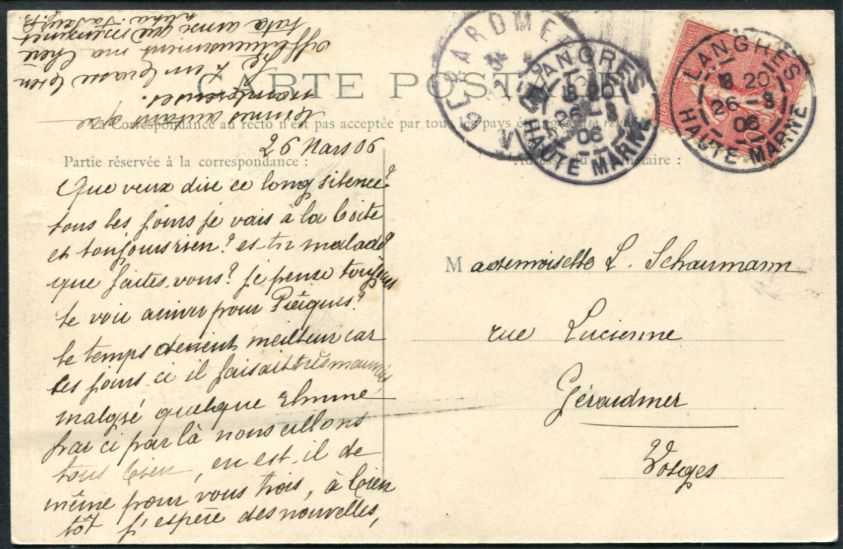 CARTE POSTALE
La Correspondance au recto n'est pas acceptée par tous les pays étrangers
26 Mars 06
Partie réservée à la correspondance :
Que veux dire ce long silence?
tous les jours je vais à la boite
et toujours rien? es tu malade?
que faites vous? je pense toujours
te voir arriver pour Pâques?
le temps devient meilleur car
ces jours ci il faisait très mauvais
malgré quelque rhume
par ci par là nous allons
tous bien, en est il de
même pour vous trois, à bien
tôt j'espère des nouvelles,
affectueusement ma chère
GERARDMER
LANGRES
8 20
26 -3
06
HAUTE MARNE
LANGRES
8 20
26 -3
06
HAUTE MARNE
Mademoiselle L. Schaumann
rue Lucienne
Gérardmer
Vosges